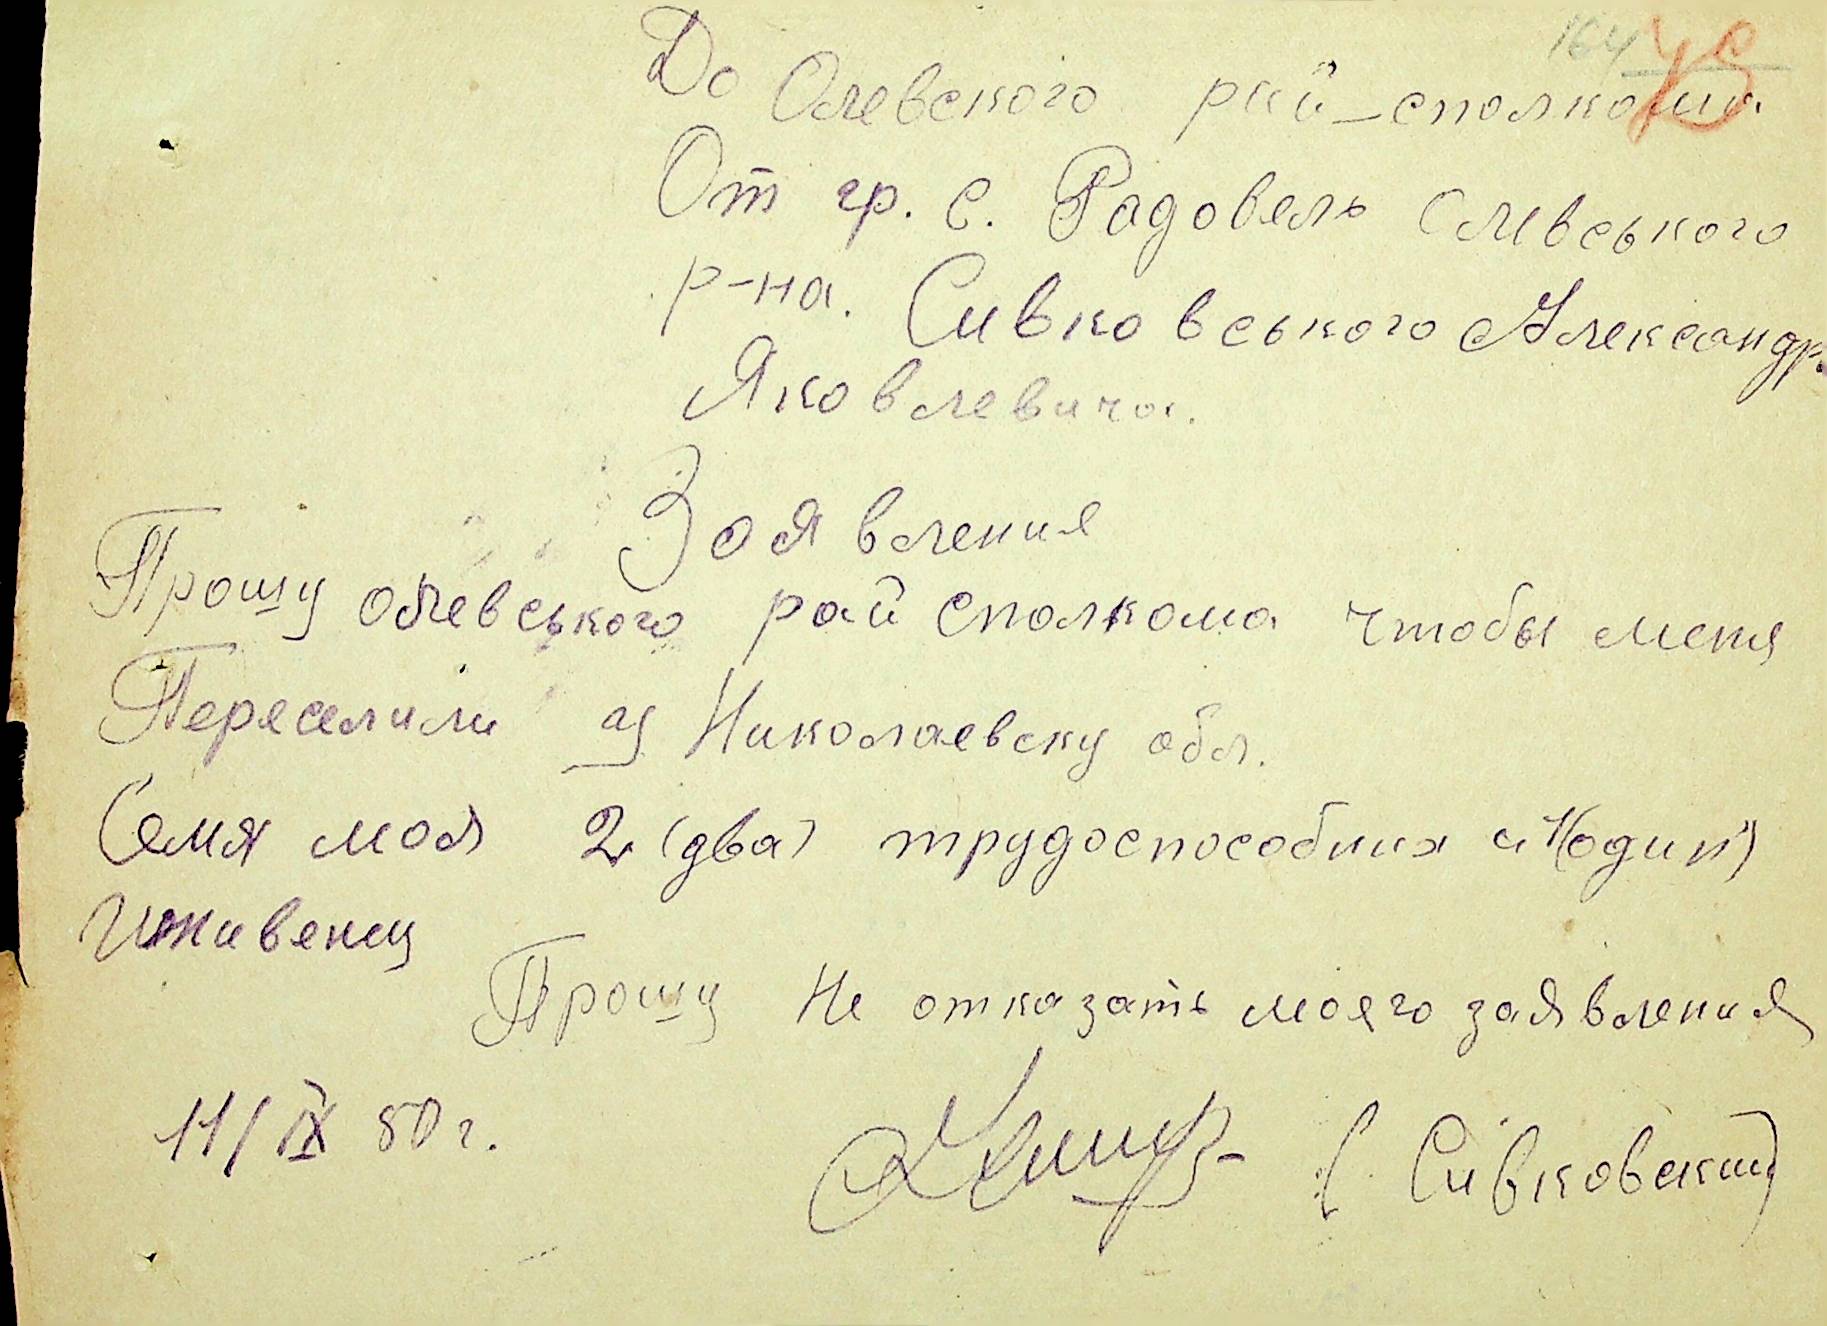 164
До Олевского рай-сполкома
От гр. с. Радовель Олевського
р-на. Сивковського Александр.
Яковлевича.
Заявления
Прошу олевського рай сполкома чтобы меня
Переселили у Николаевску обл.
Семя моя 2 (два) трудоспособних и 1 (один)
Иживенец
Прошу не отказать моего заявления
11/IX 50 г.
(Сивковский)